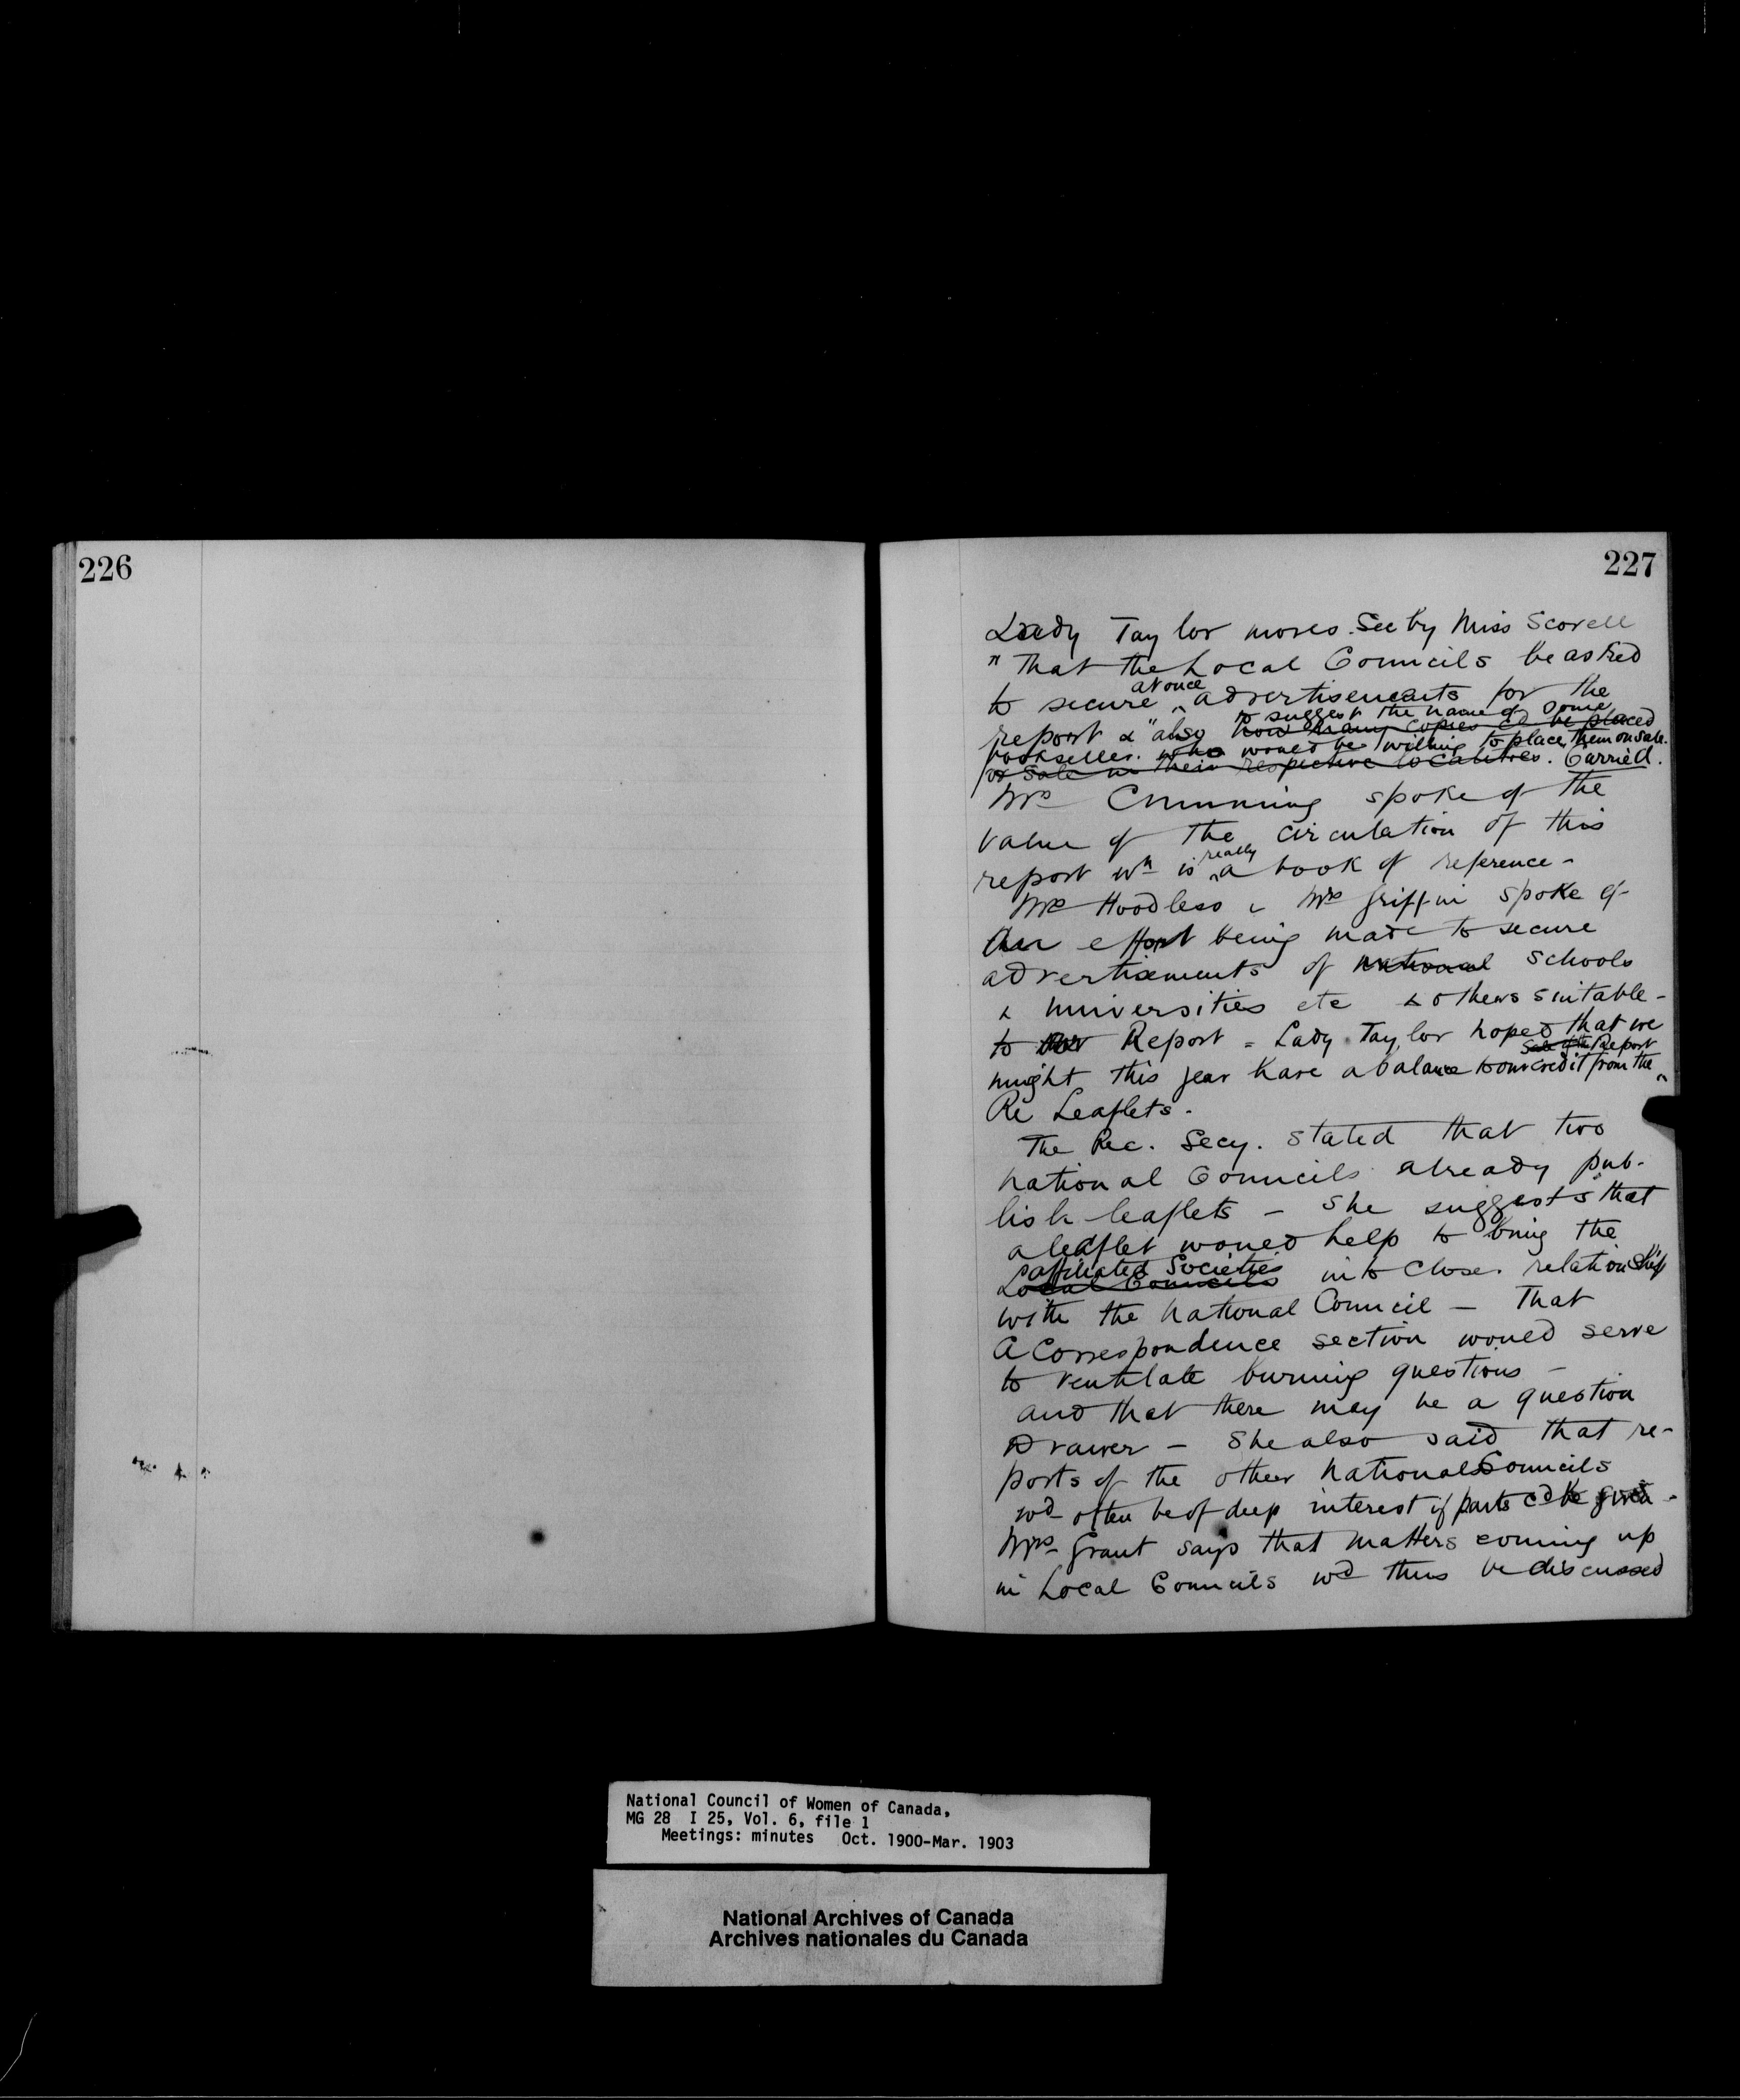 226
227
Lady Taylor moves. Sec by Miss Scovell
"That the Local Councils be asked
to secure at once advertisements for the
report & "also to suggest the name of some
how many copies cd be placed
bookseller. who would be willing to place them on sale.
or Sale in their respective localities. Carried.
Mrs Cumming spoke of the
value of the circulation of this
report wh is really a book of reference -
Mrs Hoodless & Mrs Griffin spoke of
an effort being made to secure
advertisements of national schools
& universities etc & others suitable -
to our Report - Lady Taylor hoped that we
might this year have a balance to our credit from the Sale of the Report
Re Leaflets.
The Rec. Secy. stated that two
National Councils already pub-
lish leaflets - She suggests "that
a leaflet would help to bring the
affiliated Societies
Local Councils into close. relationship"
with the National Council - That
a Correspondence section would serve
to ventilate burning questions -
and that there may be a question
Drawer - She also said that re-
ports of the other National Councils
wd often be of deep interest if parts cd be given -
Mrs Grant says that matters coming up
in Local Councils wd thus be discussed
National Council of Women of Canada,
MG 28 I 25, Vol. 6, file 1
Meetings: minutes Oct. 1900-Mar. 1903
National Archives of Canada
Archives nationales du Canada